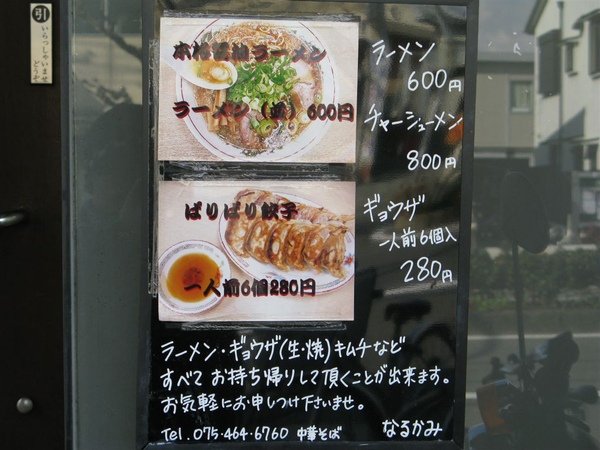 引
いらっしゃいませ
どうぞ
本格醤油ラーメン
ラーメン（並）600円
ラーメン
600円
チャーシューメン
800円
ぱりぱり餃子
一人前6個280円
ギョウザ
一人前6個入
280円
ラーメン・ギョウザ(生・焼)キムチなど
すべてお持ち帰りして頂くことが出来ます。
お気軽にお申しつけ下さいませ。
Tel.075-464-6760 中華そば なるかみ